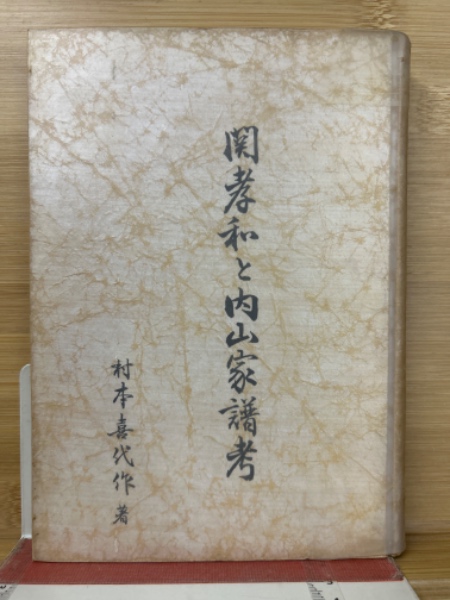 関孝和と内山家譜考
村本喜代作 著